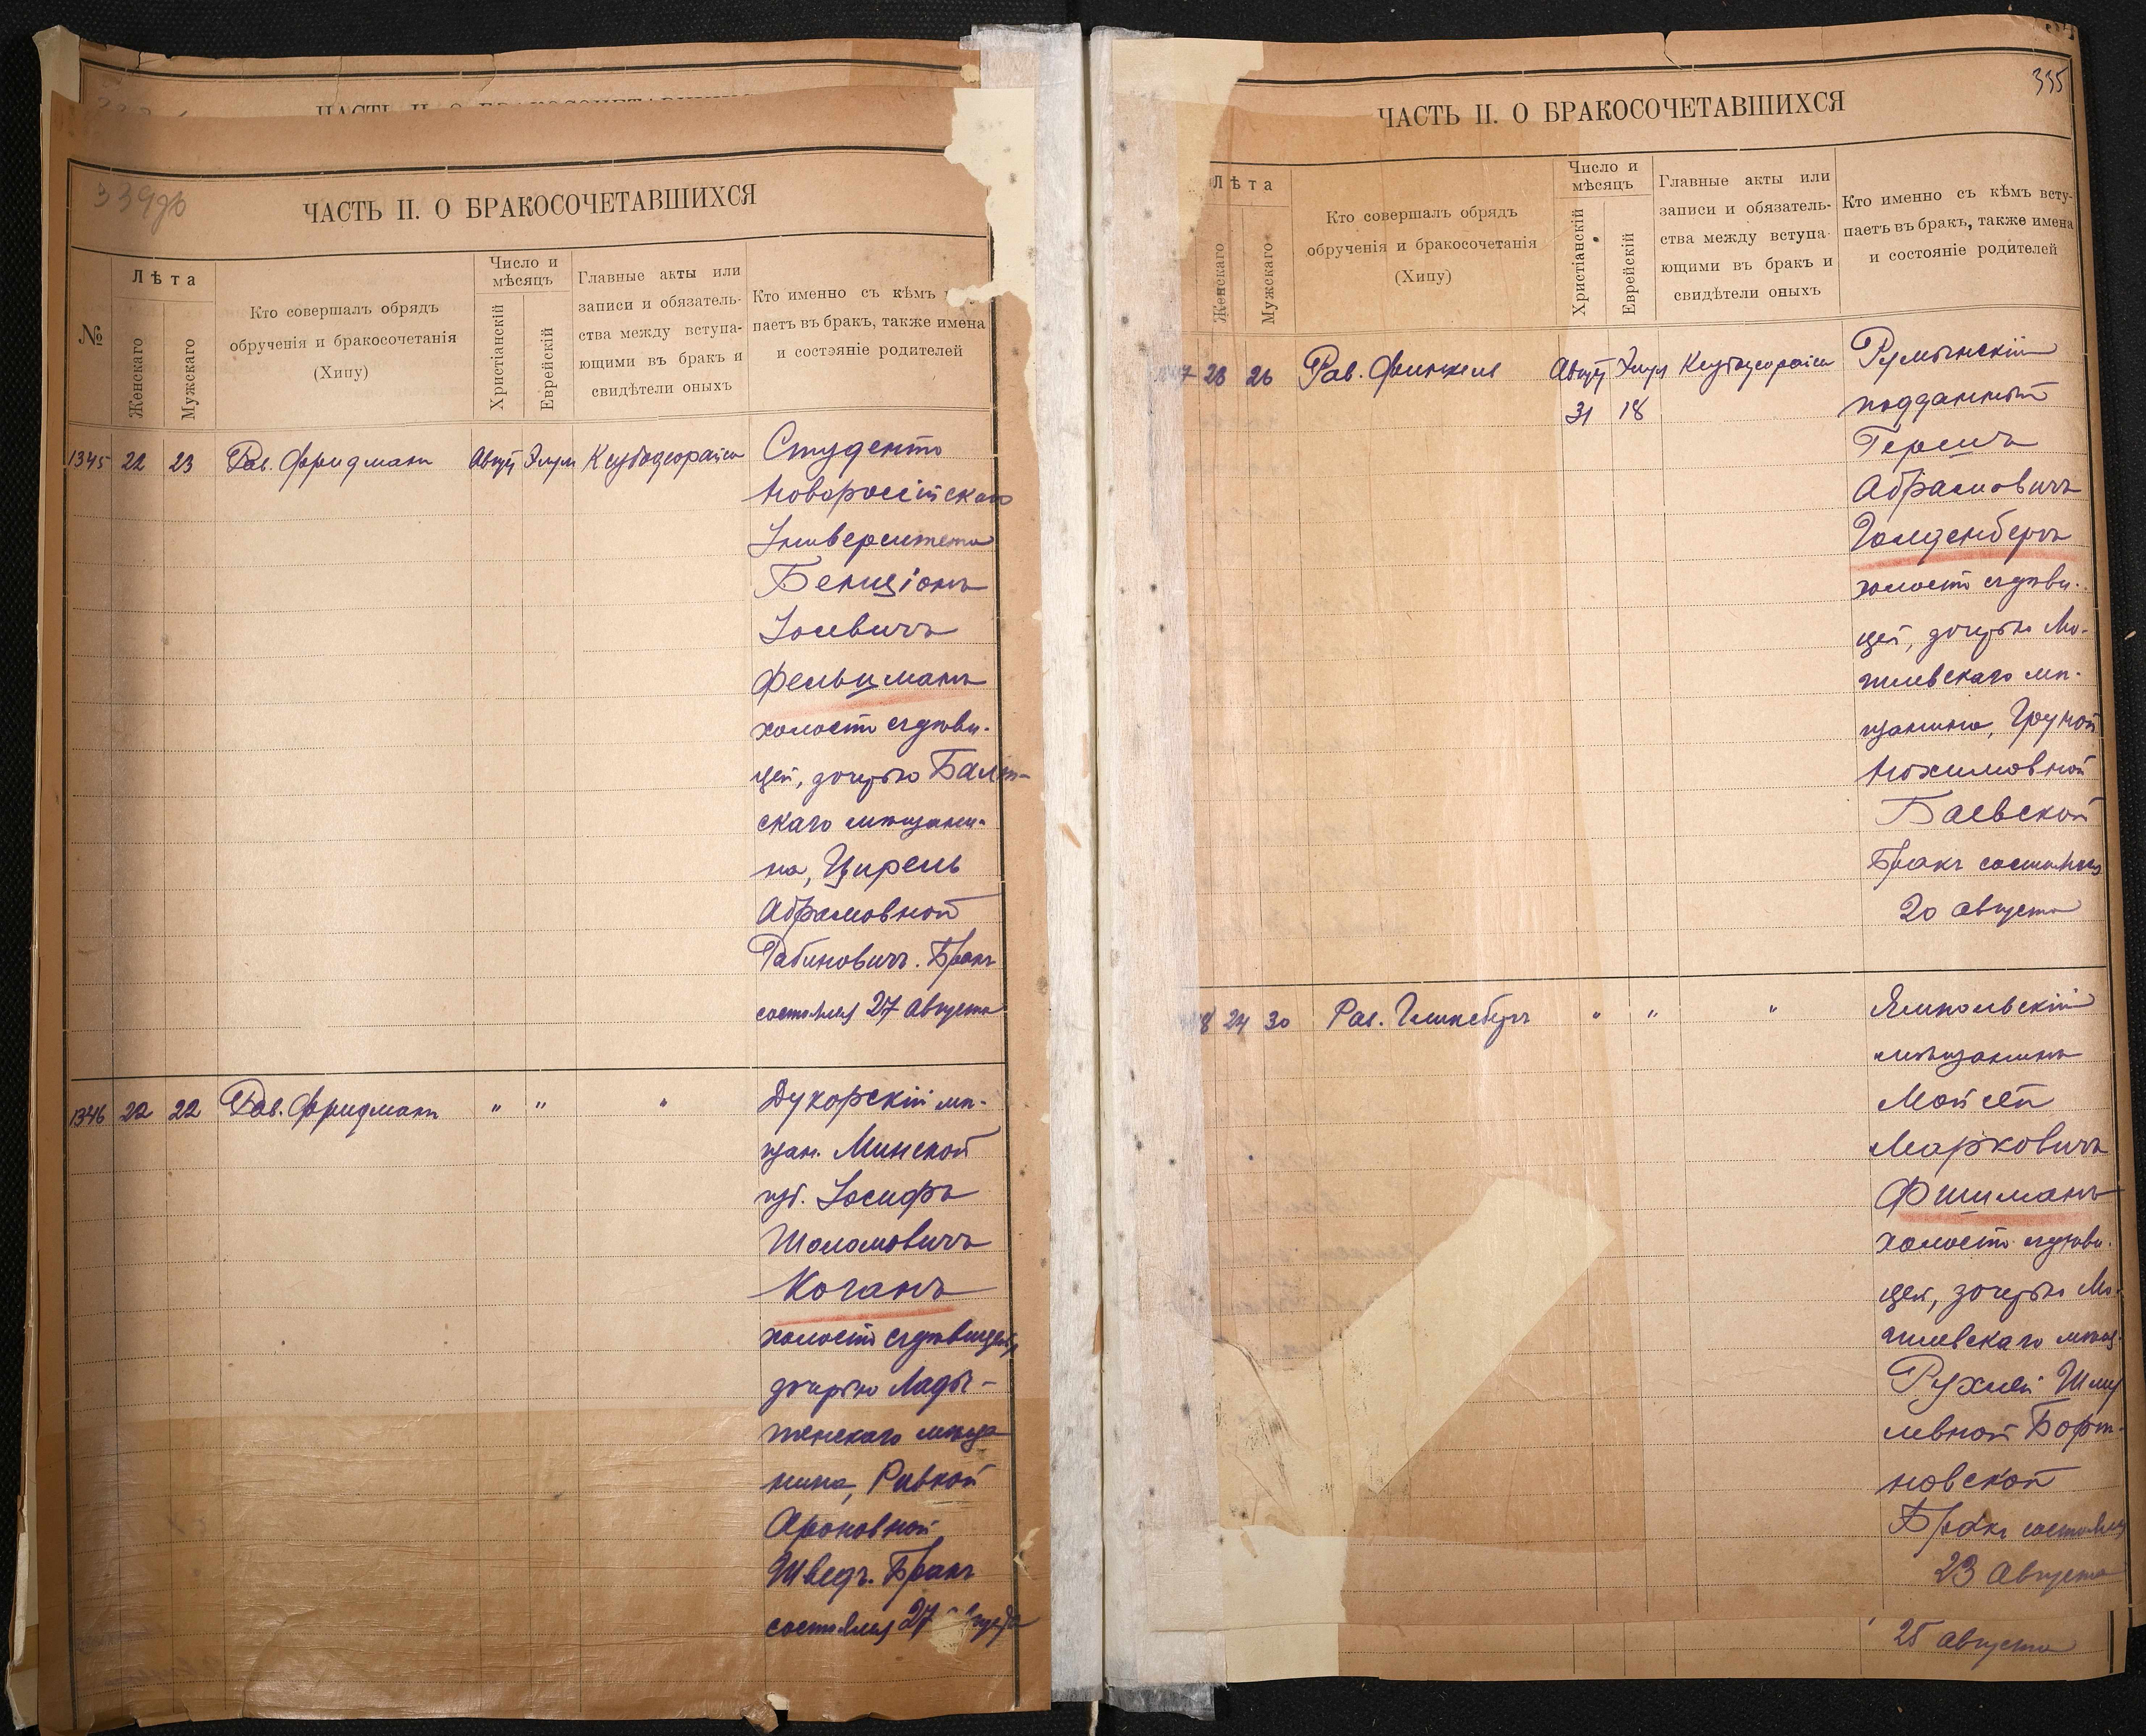 ЧАСТЬ II. О БРАКОСОЧЕТАВШИХСЯ
334об
ЧАСТЬ II. О БРАКОСОЧЕТАВШИХСЯ
№
Лѣта
Женскаго
Мужскаго
Кто совершалъ обрядъ
обрученія и бракосочетанія
(Хипу)
Число и
мѣсяцъ
Христіанскій
Еврейскій
Главные акты или
записи и обязатель-
ства между вступа-
ющими въ бракъ и
свидѣтели оныхъ
Кто именно съ кѣмъ
паетъ въ бракъ, также имена
и состояніе родителей
1345 22 23 Рав. Фридманъ Авгус Элул
Студентъ
Новороссійскаго
Университета
Бенціонъ
Іосевичъ
Фельцманъ
холостъ съ дѣви-
цей, дочерью Балт-
скаго мѣщани-
на, Цирель
Абрамовной
Рабиновичъ. Бракъ
состоялся 27 Августа
1346 22 22 Рав. Фридманъ " " "
Дукорскій мѣ-
щан. Минской
губ. Іосифъ
Шоломовичъ
Коганъ
холостъ съ дѣвицей,
дочерью Лады-
женскаго мѣща
нина, Ривкой
Ароновной
Шведъ. Бракъ
состоялся 27
335
ЧАСТЬ II. О БРАКОСОЧЕТАВШИХСЯ
Лѣта
Женскаго
Мужскаго
Кто совершалъ обрядъ
обрученія и бракосочетанія
(Хипу)
Число и
мѣсяцъ
Христіанскій
Еврейскій
Главные акты или
записи и обязатель-
ства между вступа-
ющими въ бракъ и
свидѣтели оныхъ
Кто именно съ кѣмъ всту-
паетъ въ бракъ, также имена
и состояніе родителей
7 23 26 Рав. Финкель Авгус Элул
31 18
Румынскій
подданный
Гершъ
Абрамовичъ
Голденбергъ
холостъ съ дѣви-
цей, дочерью Мо-
гилевскаго мѣ-
щанина, Груной
Нохимовной
Баевской
Бракъ состоялся
20 августа
8 24 30 Рав. Гинсбергъ " " "
Ямпольскій
мѣщанинъ
Мойсей
Марковичъ
Фишманъ
холостъ съ дѣви-
цей, дочерью Мо-
гилевскаго мѣщ.
Рухлей Шму
левной
новской
Бракъ состоялся
23 Августа
25 августа